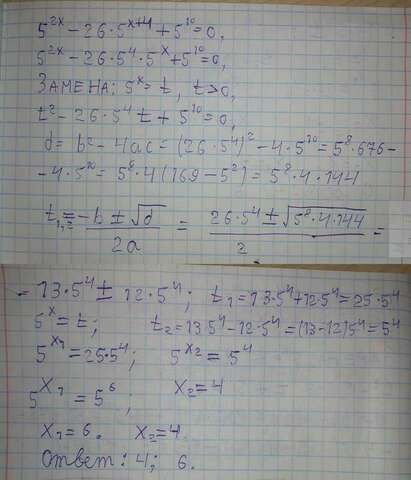 5^{2x} - 26·5^{x+4} + 5^{10} = 0,
5^{2x} - 26·5^4·5^x + 5^{10} = 0,
Замена: 5^x = t, t > 0,
t^2 - 26·5^4 t + 5^{10} = 0,
d = b^2 - 4ac = (26·5^4)^2 - 4·5^{10} = 5^8·676 -
- 4·5^{10} = 5^8·4(169 - 5^2) = 5^8·4·144
t_{1,2} = (-b ± √d)/(2a) = (26·5^4 ± √(5^8·4·144))/2 =
= 13·5^4 ± 12·5^4; t_1 = 13·5^4 + 12·5^4 = 25·5^4
5^x = t; t_2 = 13·5^4 - 12·5^4 = (13-12)5^4 = 5^4
5^{x_1} = 25·5^4; 5^{x_2} = 5^4
5^{x_1} = 5^6; x_2 = 4
x_1 = 6. x_2 = 4.
Ответ: 4; 6.